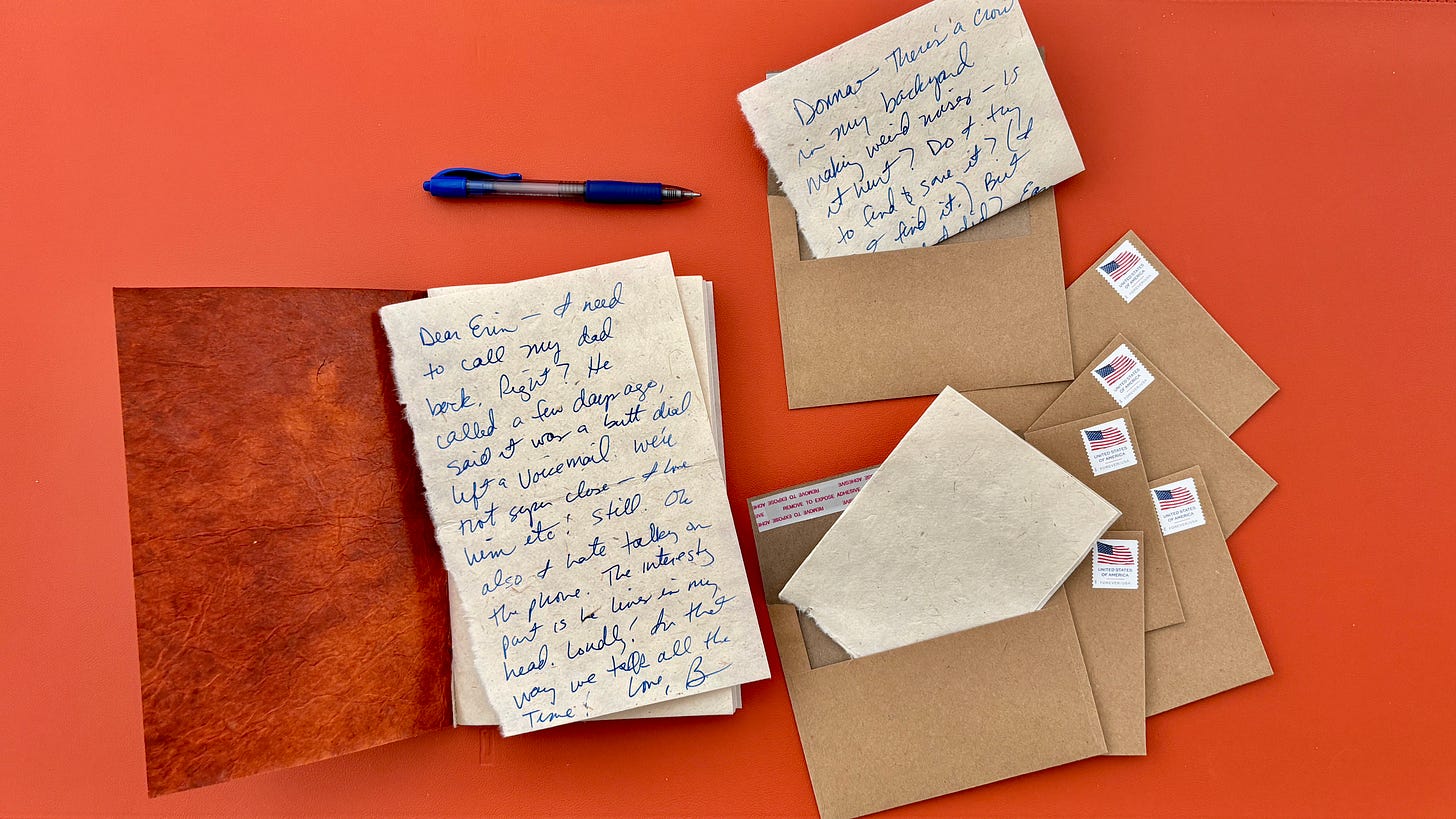 Dear Erin — I need
to call my dad
back. Right? He
called a few days ago,
said it was a butt dial
left a voicemail. We're
not super close — I love
him etc! Still. Ok
also I hate talking on
the phone. The interesty
part is he lives in my
head. Loudly! In that
way we talk all the
Time! Love, B
Donna — There's a crow
in my backyard
making weird noises — is
it hurt? Do I try
to find & save it? (I
find it.) But
I did?
REMOVE TO EXPOSE ADHESIVE
REMOVE TO EXPOSE ADHE
UNITED STATES
OF AMERICA
FOREVER/USA
UNITED STATES
OF AMERICA
FOREVER/USA
UNITED STATES
OF AMERICA
FOREVER/USA
UNITED STATES
OF AMERICA
FOREVER/USA
UNITED STATES
OF AMERICA
FOREVER/USA